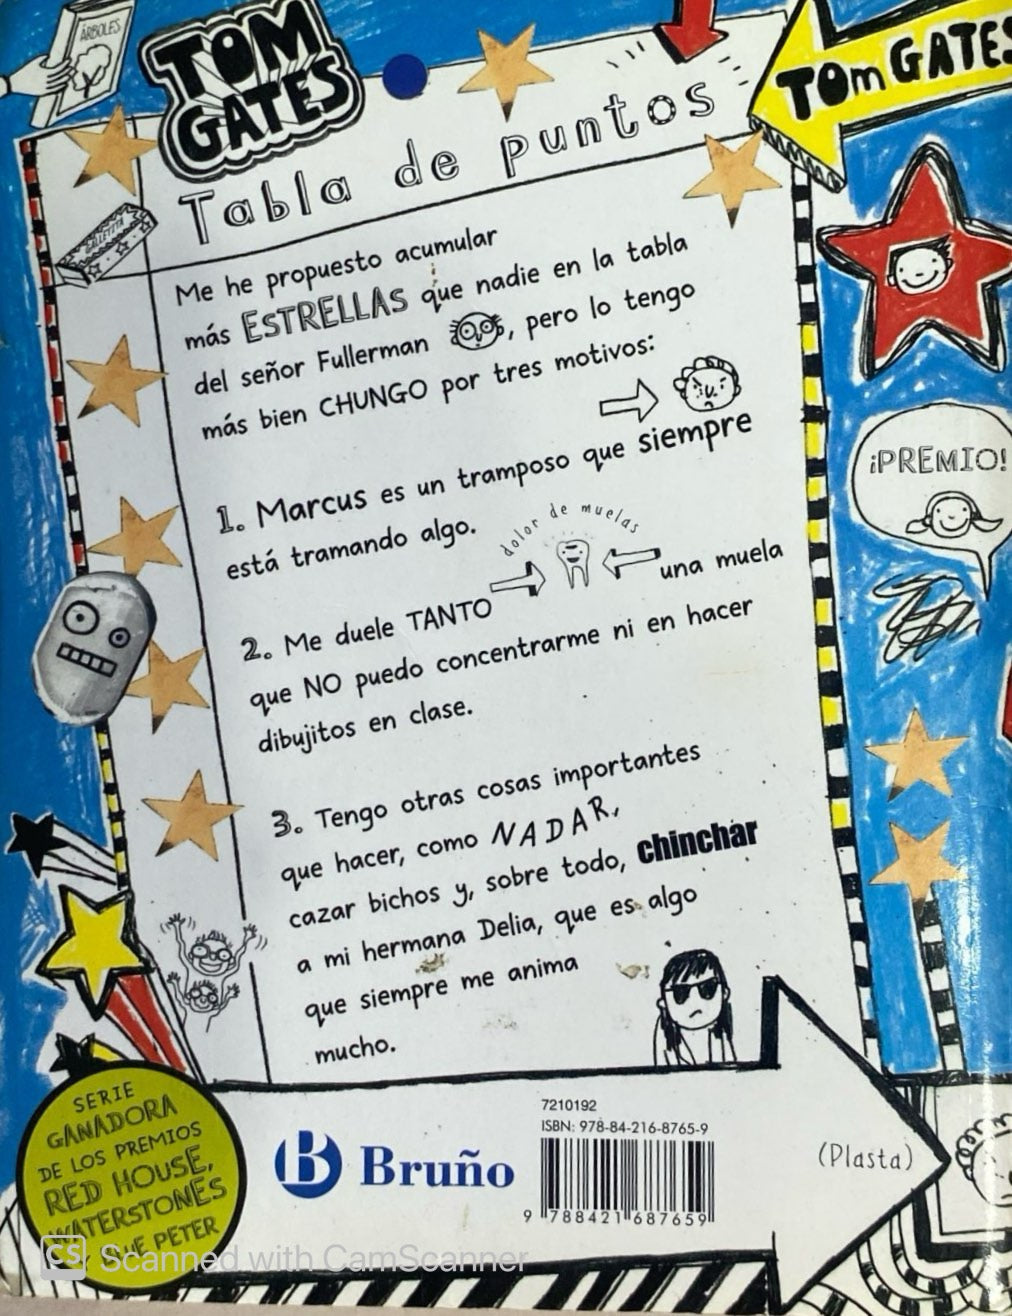 ÁRBOLES
TOM
GATES
TOm GATES
Tabla de puntos
GALLETITA
Me he propuesto acumular
más ESTRELLAS que nadie en la tabla
del señor Fullerman , pero lo tengo
más bien CHUNGO por tres motivos:
1. Marcus es un tramposo que siempre
está tramando algo.
dolor de muelas
2. Me duele TANTO una muela
que NO puedo concentrarme ni en hacer
dibujitos en clase.
3. Tengo otras cosas importantes
que hacer, como NADAR,
cazar bichos y, sobre todo, chinchar
a mi hermana Delia, que es algo
que siempre me anima
mucho.
¡PREMIO!
SERIE
GANADORA
DE LOS PREMIOS
RED HOUSE,
WATERSTONES
PETER
B Bruño
7210192
ISBN: 978-84-216-8765-9
9 788421 687659
(Plasta)
CS Scanned with CamScanner